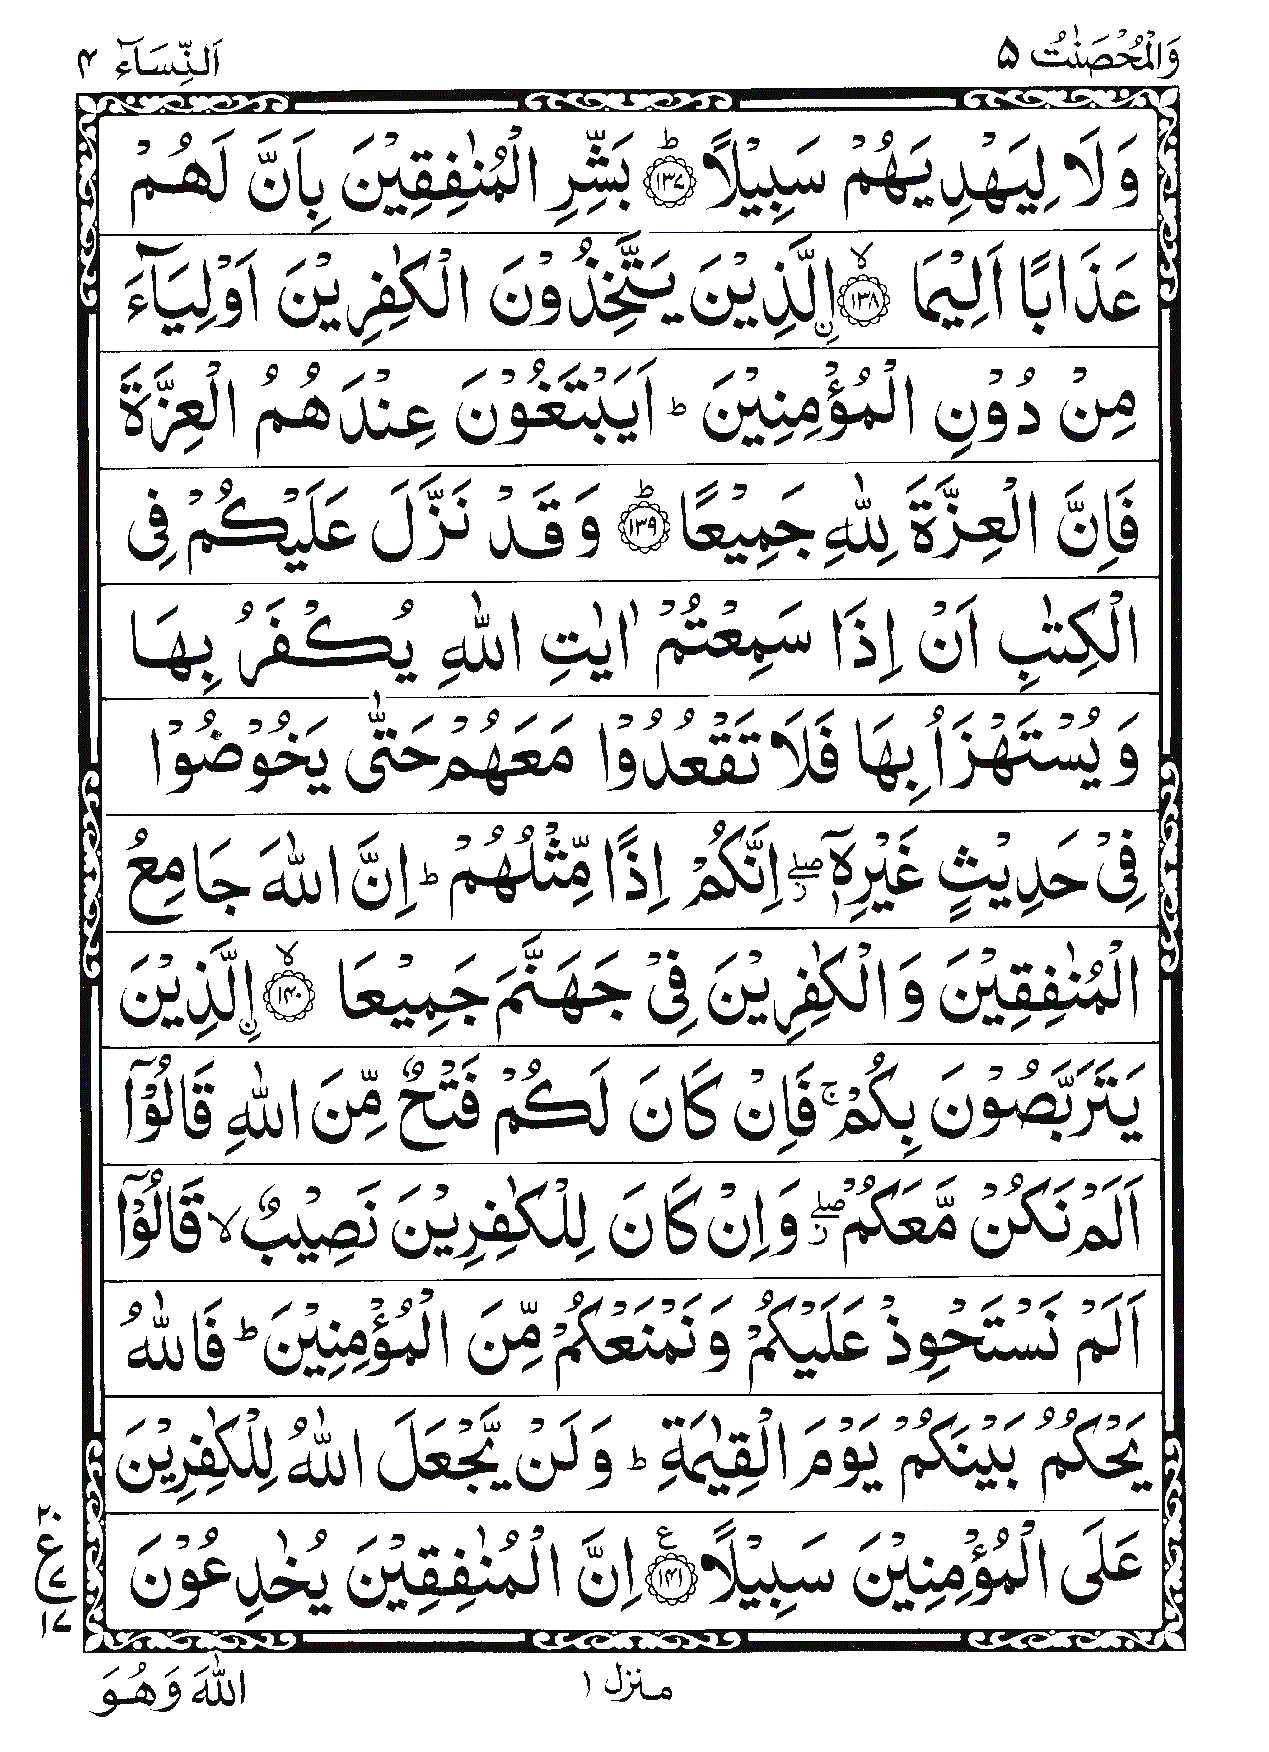 وَالْمُحْصَنٰتُ ۵ اَلنِّسَآء ۴
وَ لَا لِیَهْدِیَهُمْ سَبِیْلًا ؕ﴿۱۳۷﴾ بَشِّرِ الْمُنٰفِقِیْنَ بِاَنَّ لَهُمْ
عَذَابًا اَلِیْمَا ﴿۱۳۸﴾ۙ اۨلَّذِیْنَ یَتَّخِذُوْنَ الْكٰفِرِیْنَ اَوْلِیَآءَ
مِنْ دُوْنِ الْمُؤْمِنِیْنَ ؕ اَیَبْتَغُوْنَ عِنْدَهُمُ الْعِزَّةَ
فَاِنَّ الْعِزَّةَ لِلّٰهِ جَمِیْعًا ؕ﴿۱۳۹﴾ وَ قَدْ نَزَّلَ عَلَیْكُمْ فِی
الْكِتٰبِ اَنْ اِذَا سَمِعْتُمْ اٰیٰتِ اللّٰهِ یُكْفَرُ بِهَا
وَ یُسْتَهْزَاُ بِهَا فَلَا تَقْعُدُوْا مَعَهُمْ حَتّٰی یَخُوْضُوْا
فِیْ حَدِیْثٍ غَیْرِهٖۤ ۖ اِنَّكُمْ اِذًا مِّثْلُهُمْ ؕ اِنَّ اللّٰهَ جَامِعُ
الْمُنٰفِقِیْنَ وَ الْكٰفِرِیْنَ فِیْ جَهَنَّمَ جَمِیْعَا ﴿۱۴۰﴾ۙ اۨلَّذِیْنَ
یَتَرَبَّصُوْنَ بِكُمْ ۚ فَاِنْ كَانَ لَكُمْ فَتْحٌ مِّنَ اللّٰهِ قَالُوْۤا
اَلَمْ نَكُنْ مَّعَكُمْ ۖ وَ اِنْ كَانَ لِلْكٰفِرِیْنَ نَصِیْبٌ ۙ قَالُوْۤا
اَلَمْ نَسْتَحْوِذْ عَلَیْكُمْ وَ نَمْنَعْكُمْ مِّنَ الْمُؤْمِنِیْنَ ؕ فَاللّٰهُ
یَحْكُمُ بَیْنَكُمْ یَوْمَ الْقِیٰمَةِ ؕ وَ لَنْ یَّجْعَلَ اللّٰهُ لِلْكٰفِرِیْنَ
عَلَی الْمُؤْمِنِیْنَ سَبِیْلًا ﴿۱۴۱﴾ع اِنَّ الْمُنٰفِقِیْنَ یُخٰدِعُوْنَ
۲۰
ع
۷
۱۷
منزل ۱
اللّٰهَ وَ هُوَ